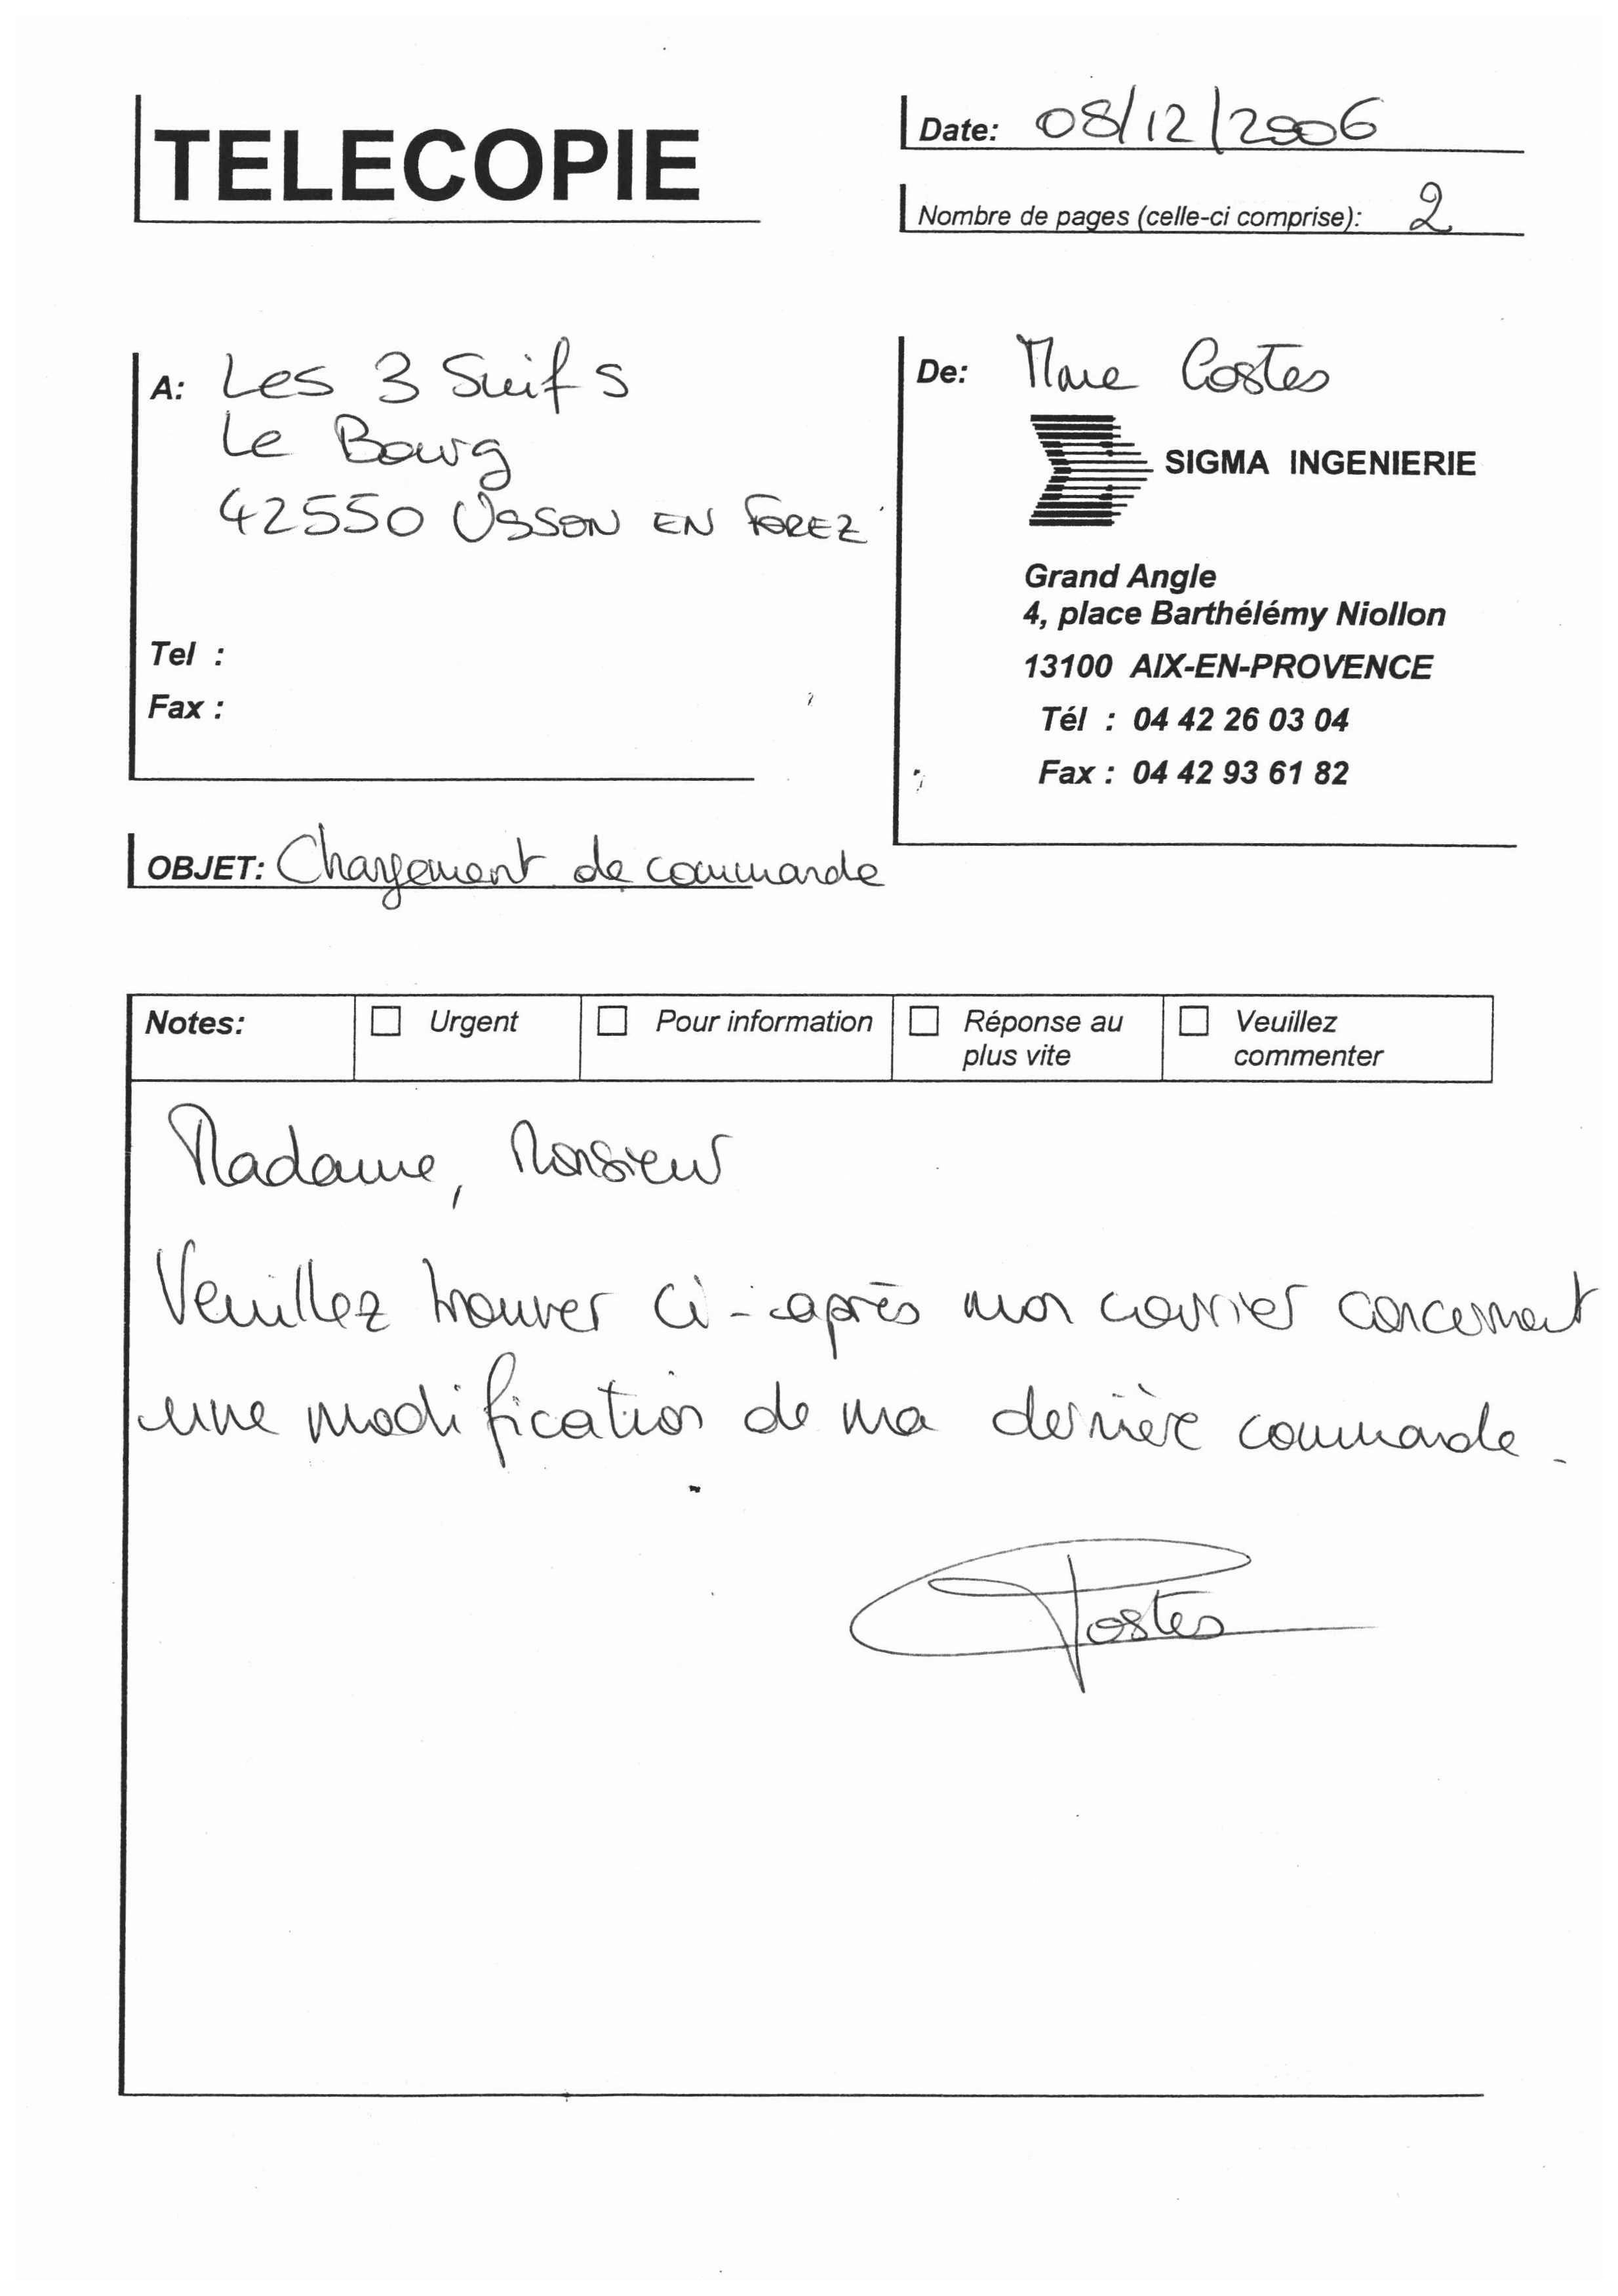 TELECOPIE
Date: 08/12/2006
Nombre de pages (celle-ci comprise): 2
A: Les 3 Suifs
Le Bourg
42550 USSON EN FOREZ
Tel :
Fax :
De: Mme Costes
SIGMA INGENIERIE
Grand Angle
4, place Barthélémy Niollon
13100 AIX-EN-PROVENCE
Tél : 04 42 26 03 04
Fax : 04 42 93 61 82
OBJET: Changement de commande
Notes: Urgent Pour information Réponse au plus vite Veuillez commenter
Madame, Monsieur
Veuillez trouver ci-après mon courrier concernant
une modification de ma dernière commande.
Costes